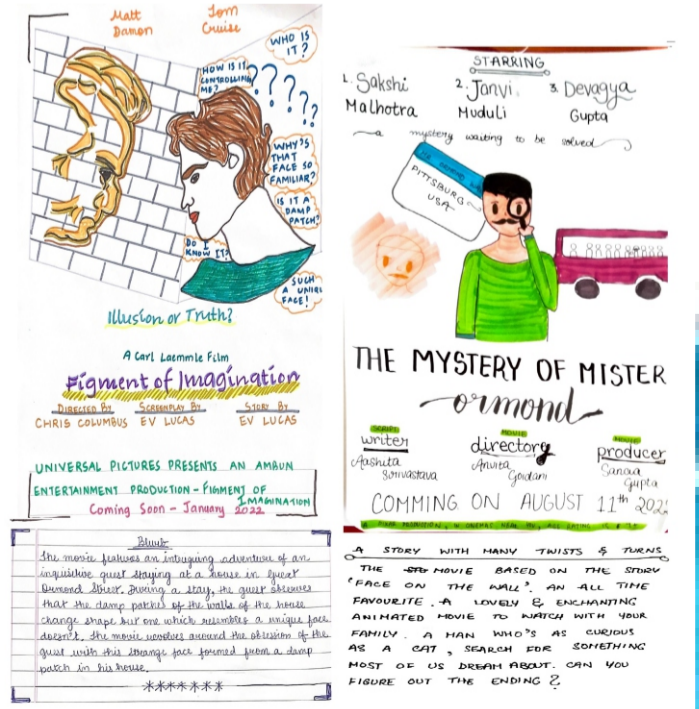 Matt Damon
Tom Cruise
WHO IS IT?
HOW IS IT CONTROLLING ME?
? ? ? ? ?
WHY'S THAT FACE SO FAMILIAR?
IS IT A DAMP PATCH?
DO I KNOW IT?
SUCH A UNIQUE FACE!
Illusion or Truth?
A Carl Laemmle Film
Figment of Imagination
DIRECTED BY SCREENPLAY BY STORY BY
CHRIS COLUMBUS EV LUCAS EV LUCAS
UNIVERSAL PICTURES PRESENTS AN AMBUN
ENTERTAINMENT PRODUCTION - FIGMENT OF IMAGINATION
Coming Soon - January 2022
Blurb
The movie features an intriguing adventure of an
inquisitive guest staying at a house in Great
Ormond Street. During a stay, the guest observes
that the damp patches of the walls of the house
change shape but one which resembles a unique face
doesn't. The movie revolves around the obsession of the
guest with this strange face formed from a damp
patch in his house.
*******
STARRING
1. Sakshi 2. Janvi 3. Devagya
Malhotra Muduli Gupta
a mystery waiting to be solved
PITTSBURG
USA
THE MYSTERY OF MISTER
ormond
SCRIPT MOVIE MOVIE
writer directory producer
Aashuta Anvita Sanaa
Srivastava Goidani Gupta
COMMING ON AUGUST 11th 202
A STORY WITH MANY TWISTS & TURNS
THE MOVIE BASED ON THE STORY
'FACE ON THE WALL'. AN ALL TIME
FAVOURITE. A LOVELY & ENCHANTING
ANIMATED MOVIE TO WATCH WITH YOUR
FAMILY. A MAN WHO'S AS CURIOUS
AS A CAT, SEARCH FOR SOMETHING
MOST OF US DREAM ABOUT. CAN YOU
FIGURE OUT THE ENDING?